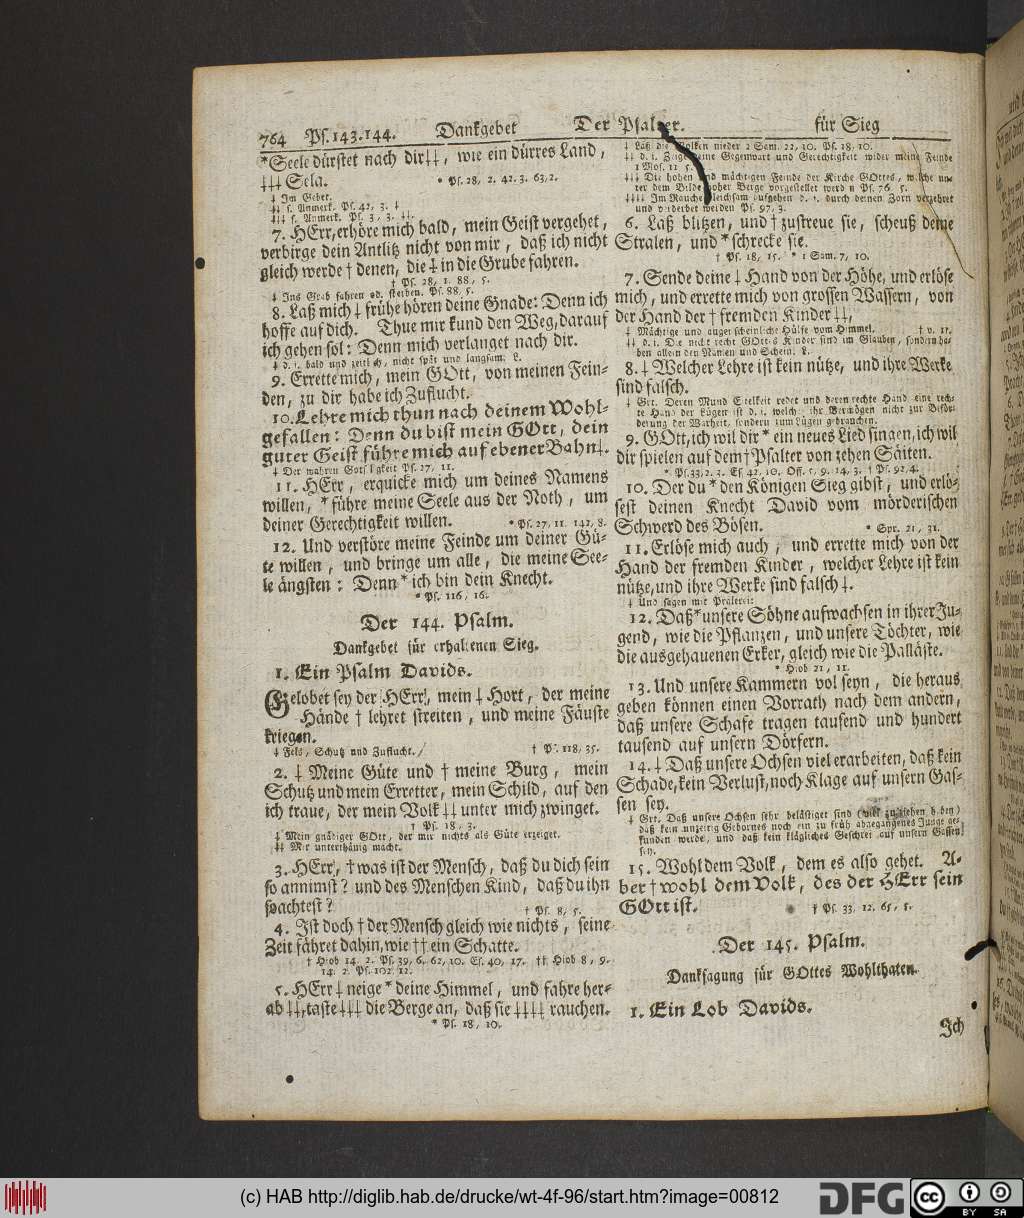 764 Ps. 143.144. Dankgebet Der Psalter. für Sieg
*Seele dürstet nach dir‡‡, wie ein dürres Land,
‡‡‡ Sela. * Ps. 28, 2. 42. 3. 63, 2.
‡ Im Gebet.
‡‡ s. Anmerk. Ps. 42, 3. ‡
‡‡‡ s. Anmerk. Ps. 3, 3. ‡‡.
7. HErr, erhöre mich bald, mein Geist vergehet,
verbirge dein Antlitz nicht von mir, daß ich nicht
gleich werde † denen, die ‡ in die Grube fahren.
† Ps. 28, 1. 88, 5.
‡ Ins Grab fahren od. sterben. Ps. 88, 5.
8. Laß mich ‡ frühe hören deine Gnade: Denn ich
hoffe auf dich. Thue mir kund den Weg, darauf
ich gehen sol: Denn mich verlanget nach dir.
‡ d. i. bald und zeitlich, nicht spät und langsam. L.
9. Errette mich, mein GOtt, von meinen Fein-
den, zu dir habe ich Zuflucht.
10. Lehre mich thun nach deinem Wohl-
gefallen: Denn du bist mein GOtt, dein
guter Geist führe mich auf ebener Bahn‡.
‡ Der wahren Gottseligkeit Ps. 27, 11.
11. HErr, erquicke mich um deines Namens
willen, * führe meine Seele aus der Noth, um
deiner Gerechtigkeit willen. * Ps. 27, 11. 142, 8.
12. Und verstöre meine Feinde um deiner Gü-
te willen, und bringe um alle, die meine See-
le ängsten: Denn * ich bin dein Knecht.
* Ps. 116, 16.
Der 144. Psalm.
Dankgebet für erhaltenen Sieg.
1. Ein Psalm Davids.
Gelobet sey der HErr, mein ‡ Hort, der meine
Hände † lehret streiten, und meine Fäuste
kriegen.
‡ Fels, Schutz und Zuflucht. † Ps. 118, 35.
2. ‡ Meine Güte und † meine Burg, mein
Schutz und mein Erretter, mein Schild, auf den
ich traue, der mein Volk ‡‡ unter mich zwinget.
† Ps. 18, 3.
‡ Mein gnädiger GOtt, der mir nichts als Güte erzeiget.
‡‡ Mir unterthänig macht.
3. HErr, † was ist der Mensch, daß du dich sein
so annimst? und des Menschen Kind, daß du ihn
so achtest? † Ps. 8, 5.
4. Ist doch † der Mensch gleich wie nichts, seine
Zeit fähret dahin, wie †† ein Schatte.
† Hiob 14. 2. Ps. 39, 6. 62, 10. Es. 40, 17. †† Hiob 8, 9.
14. 2. Ps. 102. 12.
5. HErr ‡ neige * deine Himmel, und fahre her-
ab ‡‡, taste ‡‡‡ die Berge an, daß sie ‡‡‡‡ rauchen.
* Ps. 18, 10.
‡ Laß die Wolken nieder 2 Sam. 22, 10. Ps. 18, 10.
‡‡ d. i. Zeige deine Gegenwart und Gerechtigkeit wider meine Feinde
1 Mos. 11. 5.
‡‡‡ Die hohen und mächtigen Feinde der Kirche GOttes, welche un-
ter dem Bilde hoher Berge vorgestellet werden Ps. 76, 5.
‡‡‡‡ Im Rauche gleichsam aufgehen d. i. durch deinen Zorn verzehret
und verderbet werden Ps. 97, 3.
6. Laß blitzen, und † zustreue sie, scheuß deine
Stralen, und * schrecke sie.
† Ps. 18, 15. * 1 Sam. 7, 10.
7. Sende deine ‡ Hand von der Höhe, und erlöse
mich, und errette mich von grossen Wassern, von
der Hand der † fremden Kinder ‡‡,
‡ Mächtige und augenscheinliche Hülfe vom Himmel. † v. 11.
‡‡ d. i. Die nicht recht GOttes Kinder sind im Glauben, sondern ha-
ben allein den Namen und Schein. L.
8. ‡ Welcher Lehre ist kein nütze, und ihre Werke
sind falsch.
‡ Grt. Deren Mund Eitelkeit redet und deren rechte Hand eine rech-
te Hand der Lügen ist d. i. welche ihr Vermögen nicht zur Beför-
derung der Warheit, sondern zum Lügen gebrauchen.
9. GOtt, ich wil dir * ein neues Lied singen, ich wil
dir spielen auf dem † Psalter von zehen Säiten.
* Ps. 33, 2. 3. Es. 42, 10. Off. 5, 9. 14, 3. † Ps. 92, 4.
10. Der du * den Königen Sieg gibst, und erlö-
sest deinen Knecht David vom mörderischen
Schwerd des Bösen. * Spr. 21, 31.
11. Erlöse mich auch, und errette mich von der
Hand der fremden Kinder, welcher Lehre ist kein
nütze, und ihre Werke sind falsch ‡.
‡ Und sagen mit Pralerei:
12. Daß * unsere Söhne aufwachsen in ihrer Ju-
gend, wie die Pflanzen, und unsere Töchter, wie
die ausgehauenen Erker, gleich wie die Palläste.
* Hiob 21, 11.
13. Und unsere Kammern vol seyn, die heraus
geben können einen Vorrath nach dem andern,
daß unsere Schafe tragen tausend und hundert
tausend auf unsern Dörfern.
14. ‡ Daß unsere Ochsen viel erarbeiten, daß kein
Schade, kein Verlust, noch Klage auf unsern Gas-
sen sey.
‡ Grt. Daß unsere Ochsen sehr belästiget sind (viel zuziehen haben)
daß kein unzeitig Gebornes noch ein zu früh abgegangenes Junge ge-
funden werde, und daß kein klägliches Geschrei auf unsern Gassen
sey.
15. Wohl dem Volk, dem es also gehet. A-
ber † wohl dem Volk, des der HErr sein
GOtt ist. † Ps. 33. 12. 65, 5.
Der 145. Psalm.
Danksagung für GOttes Wohlthaten.
1. Ein Lob Davids.
Ich
(c) HAB http://diglib.hab.de/drucke/wt-4f-96/start.htm?image=00812
DFG
cc BY SA